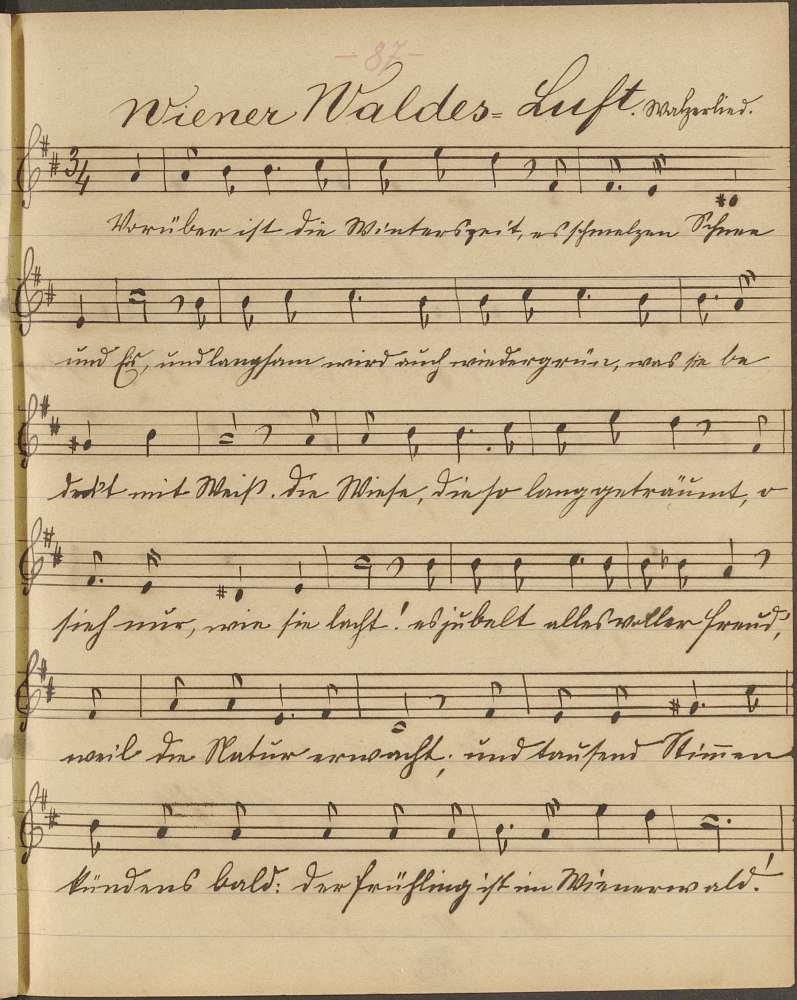 - 87 -
Wiener Waldes= Luft. Walzerlied.
3/4
Vorüber ist die Winterszeit, es schmelzen Schnee
und Eis, und langsam wird auch wiedergrün, was sie be
deckt mit Weiß. Die Wiese, die so lang geträumt, o
sieh nur, wie sie lacht! es jubelt alles voller Freud,
weil die Natur erwacht; und tausend Stim̅en
kündens bald: der Frühling ist im Wienerwald!